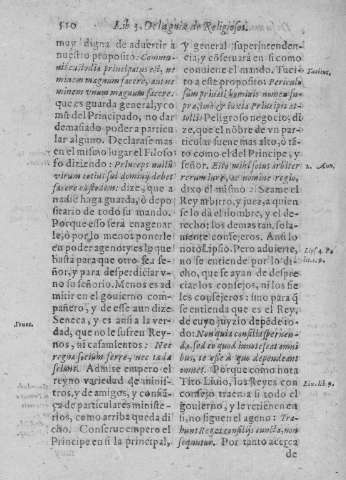 510 Lib 3. De la guia de Religiosos.
muy digna de aduertir a
nuestro proposito. Commu-
nis custodia principatus est, ne
neminem magnum facere, aut ne-
minem vnum magnum facere:
que es guarda general, y co-
mũ del Principado, no dar
demasiado poder a particu
lar alguno. Declarase mas
en el mismo lugar el Filoso
fo diziendo: Princeps nullũ
virum totius sui dominij debet
facere custodem: dize, que a
nadie haga guarda, ò depo
sitario de todo su mando.
Porque esso será enagenar
le, ò por lo menos ponerle
en poder ageno: y es lo que
basta para que otro sea se-
ñor, y para desperdiciar v-
no su señorio. Menos es ad
mitir en el gouierno compa
ñero, y de esse aun dize
Seneca, y es ansi a la ver-
dad, que no le sufren Rey-
nos, ni casamientos: Nec
regna socium ferre, nec tæda
sciunt. Admite empero el
reyno variedad de minis-
tros, y de amigos, y confiã-
ça de particulares ministe-
rios, como arriba queda di
cho. Conserue empero el
Principe en si la principal,
y general superintenden-
cia, y cõseruarà en si como
conuiene el mando. Tuci-
to a este proposito: Periculo
sum priuati hominis nomen su-
pra,
Principis at-
tolli: Peligroso negocio, di-
ze, que el nõbre de vn par-
ticular suene mas alto, ò tã-
to como el del Principe, y
señor. Esto mihi solus arbiter
rerum iure, ac nomine regio,
dixo el mismo: Seame el
Rey arbitro, y juez, a quien
se lo dá el nombre, y el de-
recho; los demas tan, sola-
mente consejeros. Ansi lo
notò Lipsio. Pero aduierte,
no se entiende por lo di-
cho, que se ayan de despre-
ciar los consejos, ni los fie
les consejeros: sino para q̃
se entienda que es el Rey,
de cuyo juyzio depẽde to-
do: Non quia consilia sperien-
da, sed eo quod innotescat omni
bus, te vt se à quo dependeant
omnes. Porque como nota
Tito Liuio, los Reyes con
consejo traen a si todo el
gouierno, y le retienen en
si, no siguen el ageno: Tra-
hunt Reges consilijs cuncta, non
sequntur. Por tanto acerca
de
Tacitus.
2. Ann.
Liu. lib. 9.